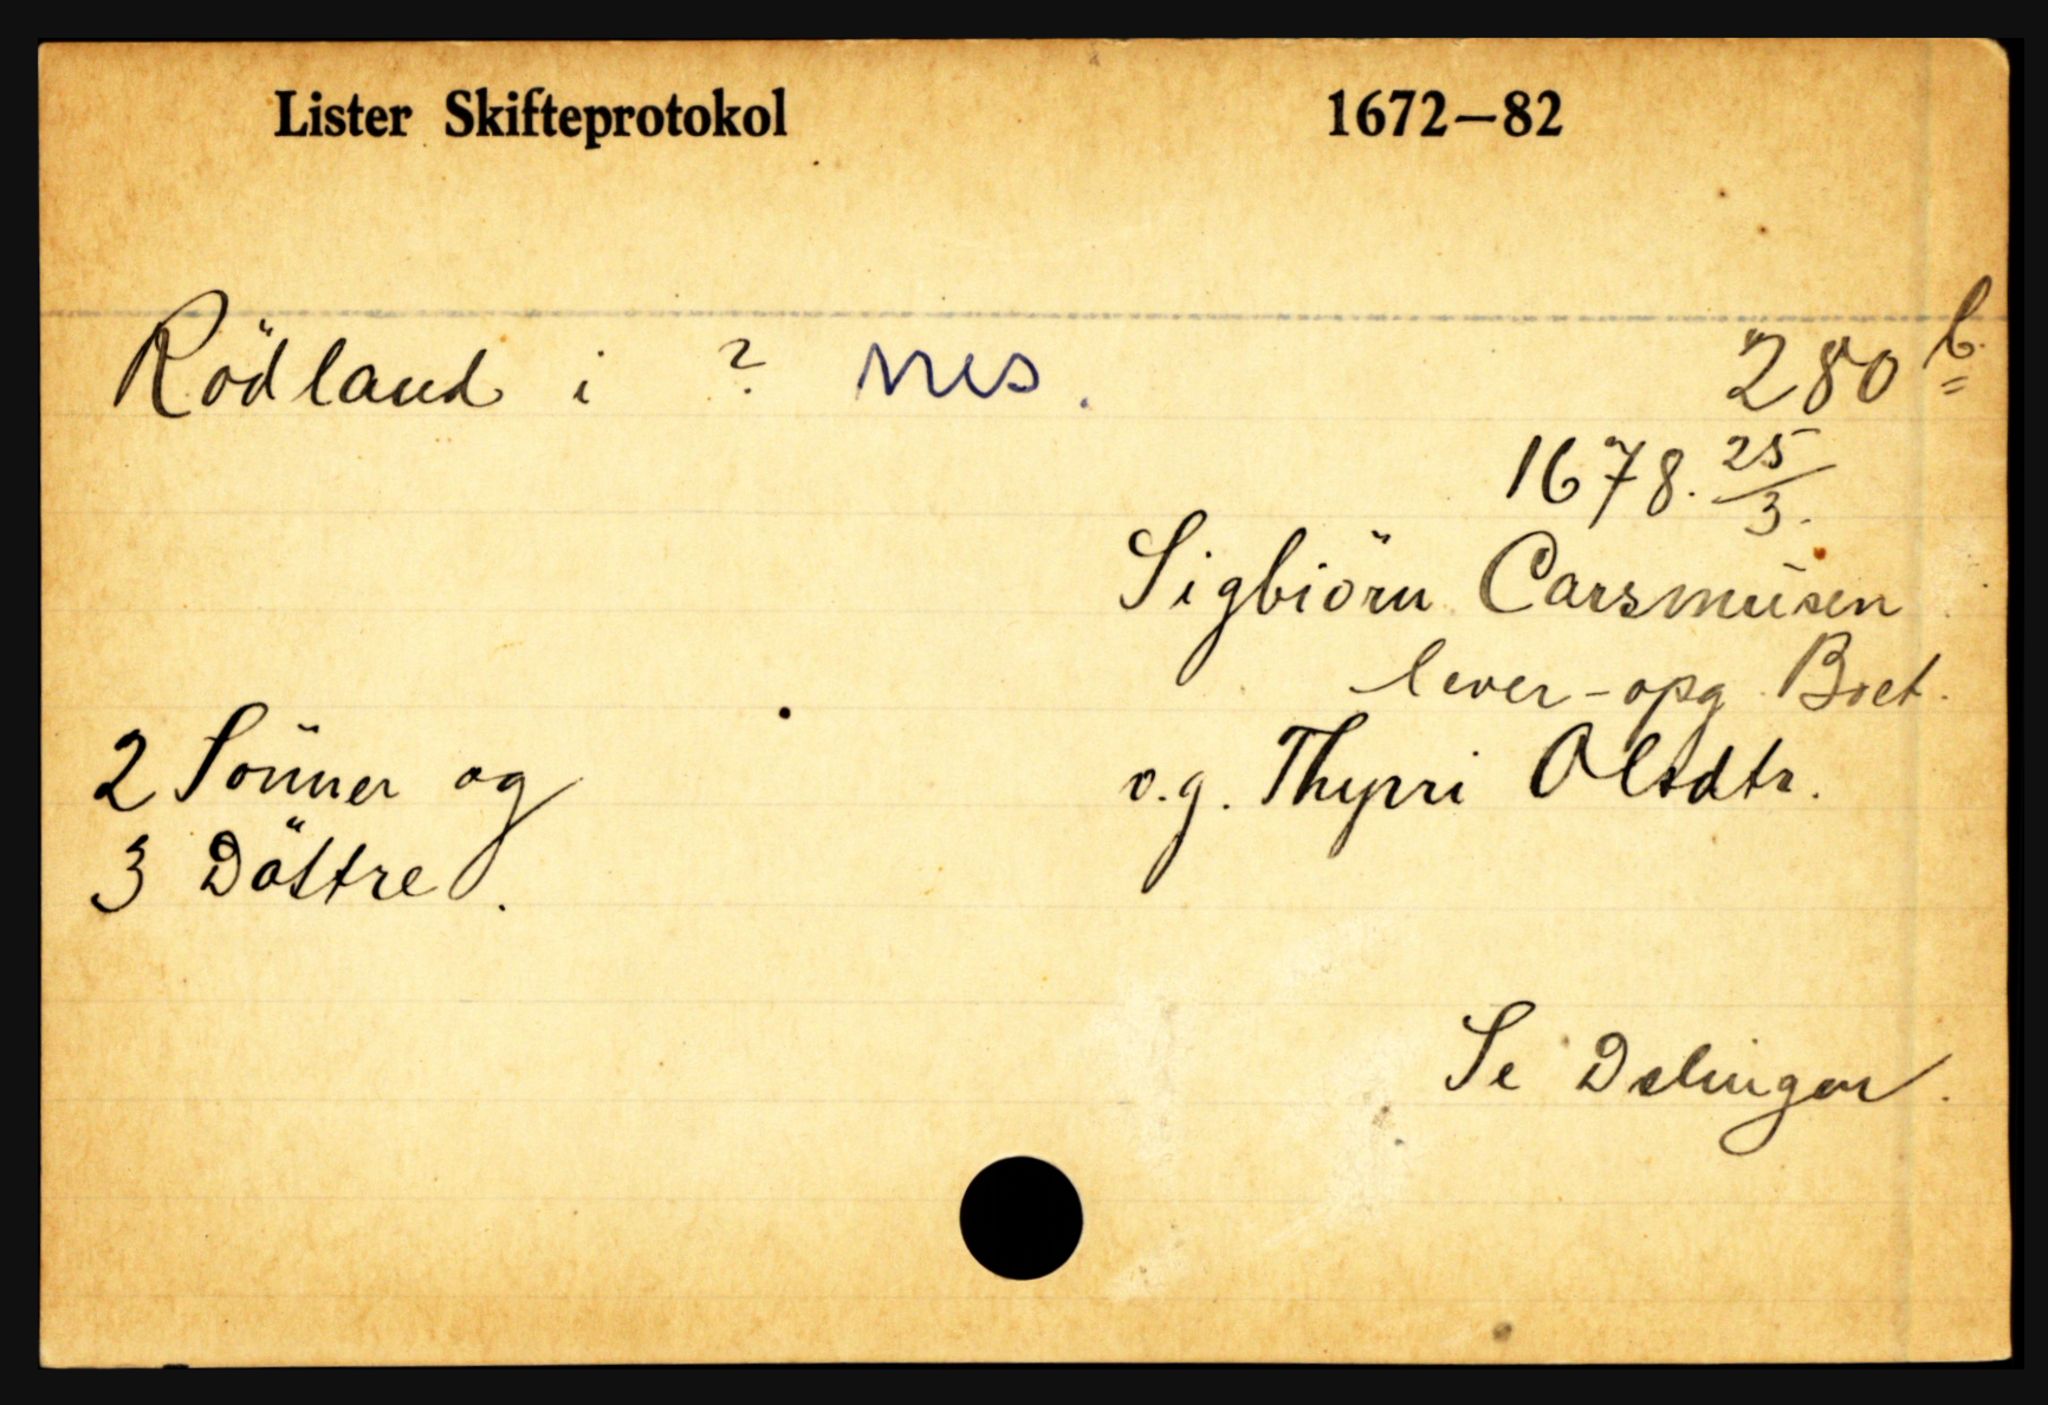 Lister Skifteprotokol 1672—82
Rödland i ? Nes. 280 b.
1678. 25/3.
Sigbiörn Carsmusen
lever - opg Boet.
2 Sönner og o.g. Thyrri Olsdtr.
3 Döttre.
Se Delingen.